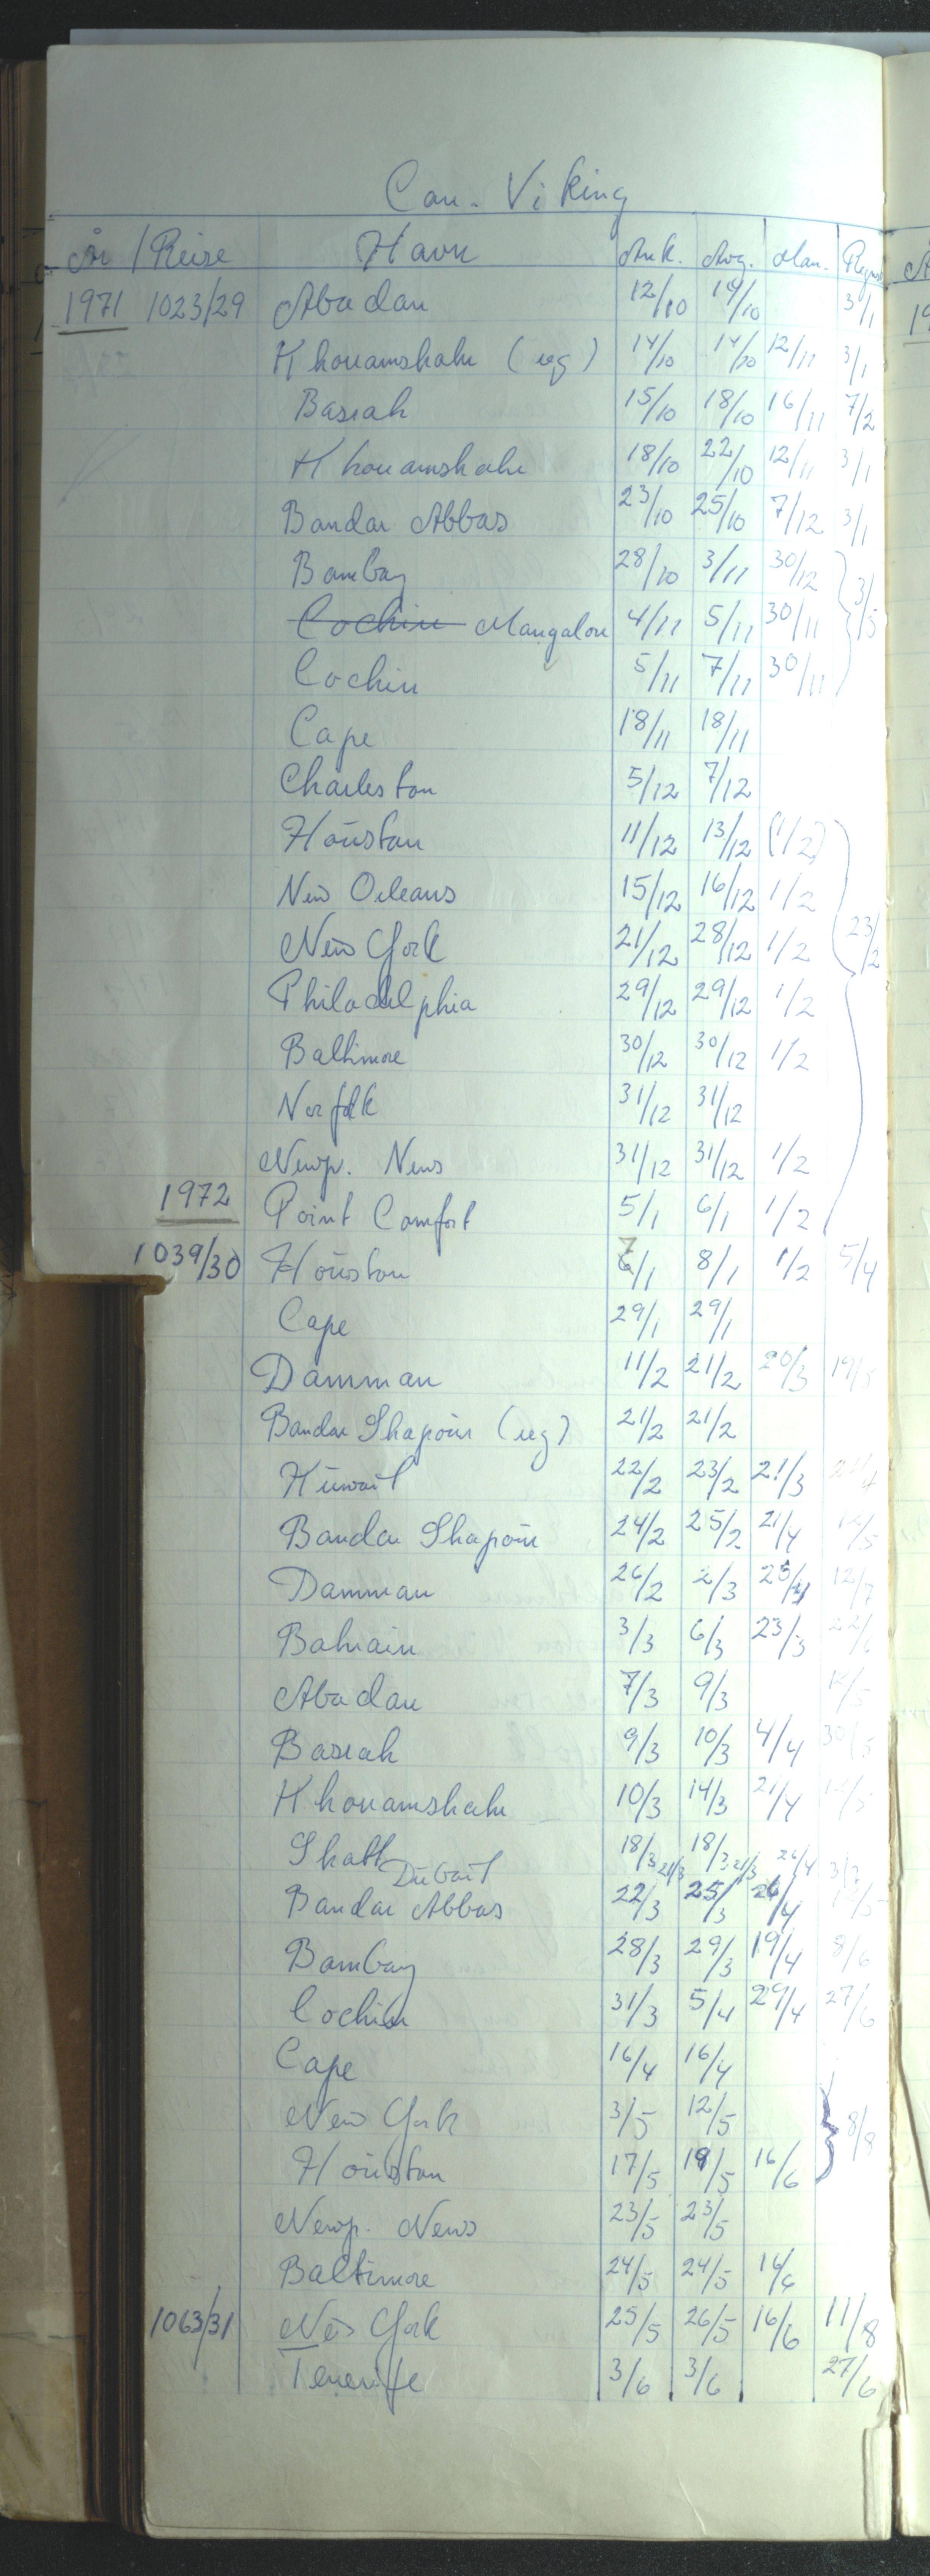 Con. Viking
År / Reise Havn Ank. Avg. Man. Regnsk
1971 1023/29 Abadan 12/10 14/10 3/1
Khoramshahr (reg) 14/10 14/10 12/11 3/1
Basrah 15/10 18/10 16/11 7/2
Khoramshahr 18/10 22/10 12/11 3/1
Bandar Abbas 23/10 25/10 7/12 3/1
Bombay 28/10 3/11 30/12
Cochin Mangalore 4/11 5/11 30/11 3/5
Cochin 5/11 7/11 30/11
Cape 18/11 18/11
Charleston 5/12 7/12
Houston 11/12 13/12 (1/2)
New Orleans 15/12 16/12 1/2
New York 21/12 28/12 1/2 23/2
Philadelphia 29/12 29/12 1/2
Baltimore 30/12 30/12 1/2
Norfolk 31/12 31/12
Newp. News 31/12 31/12 1/2
1972 Point Comfort 5/1 6/1 1/2
1039/30 Houston 7/1 8/1 1/2 5/4
Cape 29/1 29/1
Damman 11/2 21/2 20/3 19/5
Bandar Shapour (reg) 21/2 21/2
Kuwait 22/2 23/2 21/3
Bandar Shapour 24/2 25/2 21/4 12/5
Damman 26/2 2/3 12/7
Bahrain 3/3 6/3 23/3
Abadan 7/3 9/3
Basrah 9/3 10/3 4/4 30/5
Khoramshahr 10/3 14/3 21/4 12/5
18/3 18/3
Dubai 21/3 21/3 26/4
Bandar Abbas 22/3 25/3 26/4
Bombay 28/3 29/3 19/4 8/6
Cochin 31/3 5/4 29/4 27/6
Cape 16/4 16/4
New York 3/5 12/5 8/8
Houston 17/5 19/5 16/6
Newp. News 23/5 23/5
Baltimore 24/5 24/5 16/6
1063/31 New York 25/5 26/5 16/6 11/8
Tenerife 3/6 3/6 27/6